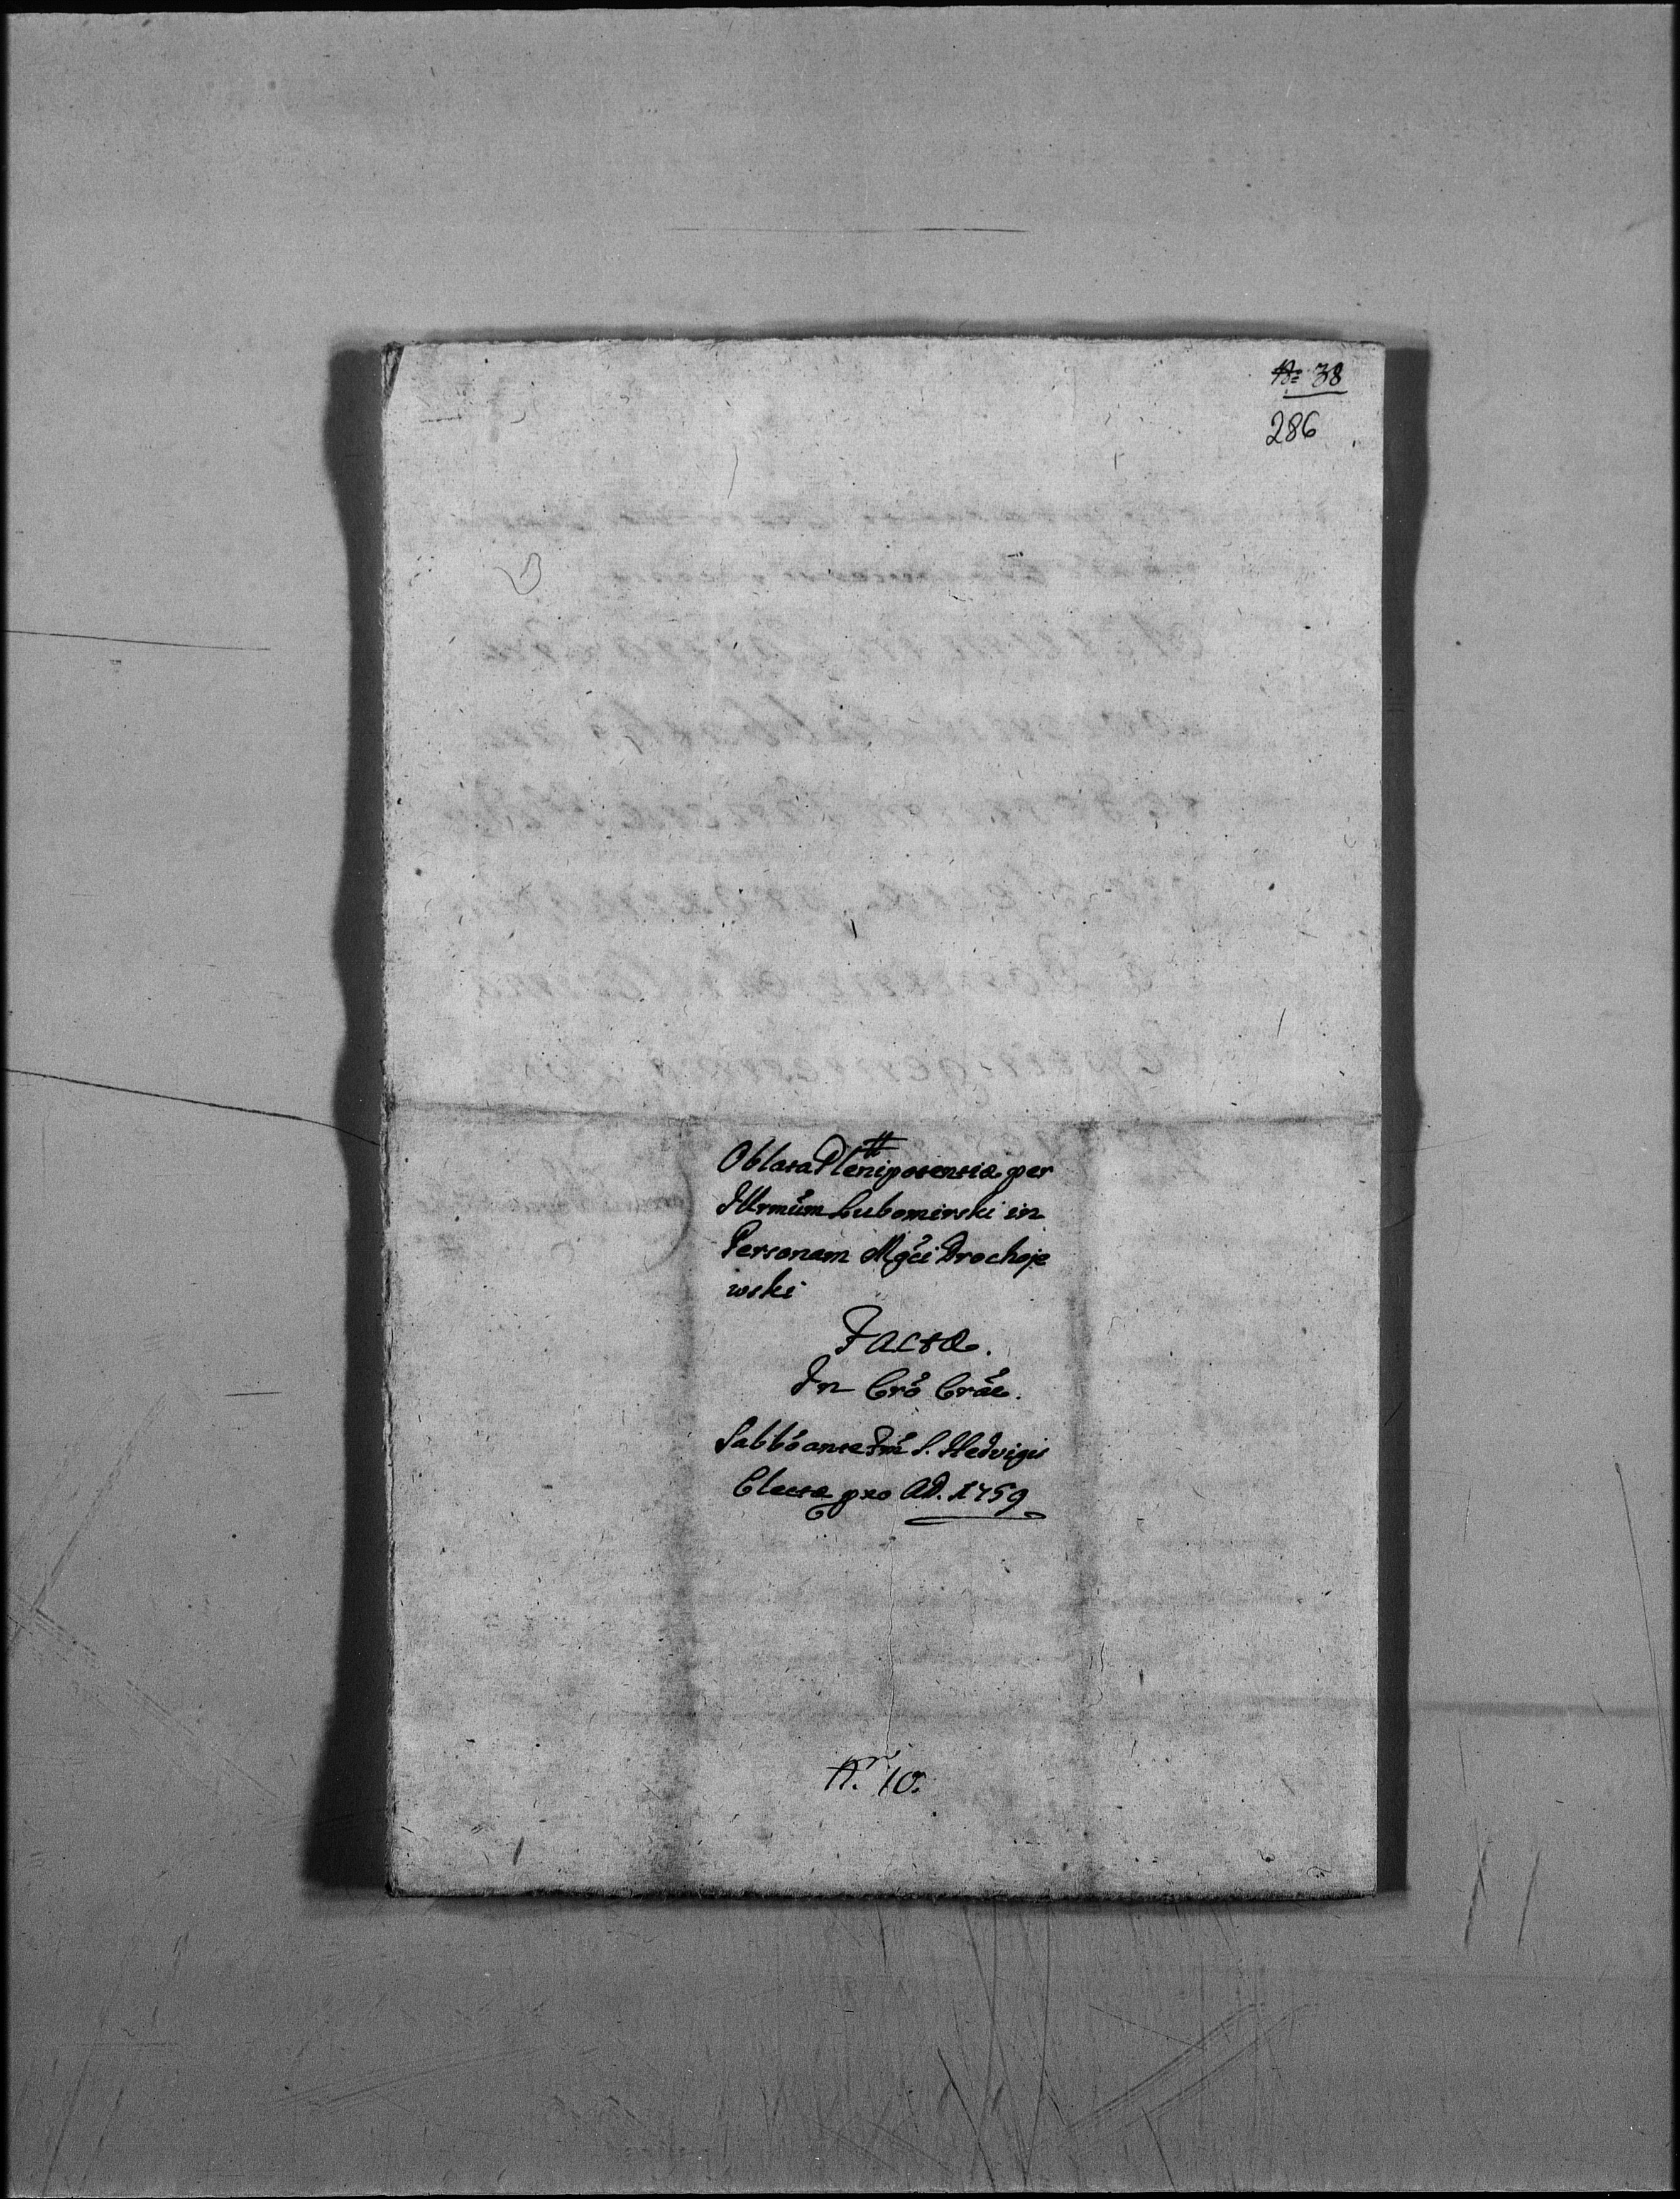 No 38
286
Oblata Plenipotentiæ per
Illrmum Lubomirski in
Personam Mgci Drohoje
wski
Facta.
In Cro Crac.
Sabbo ante Fm S. Hedvigis
Electæ pro AD. 1759
Nr 10.